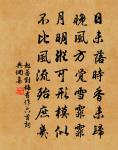 日未落時香未歸
晚風方覺雪霏霏
月明縱可形模似
不比風流殆庶幾